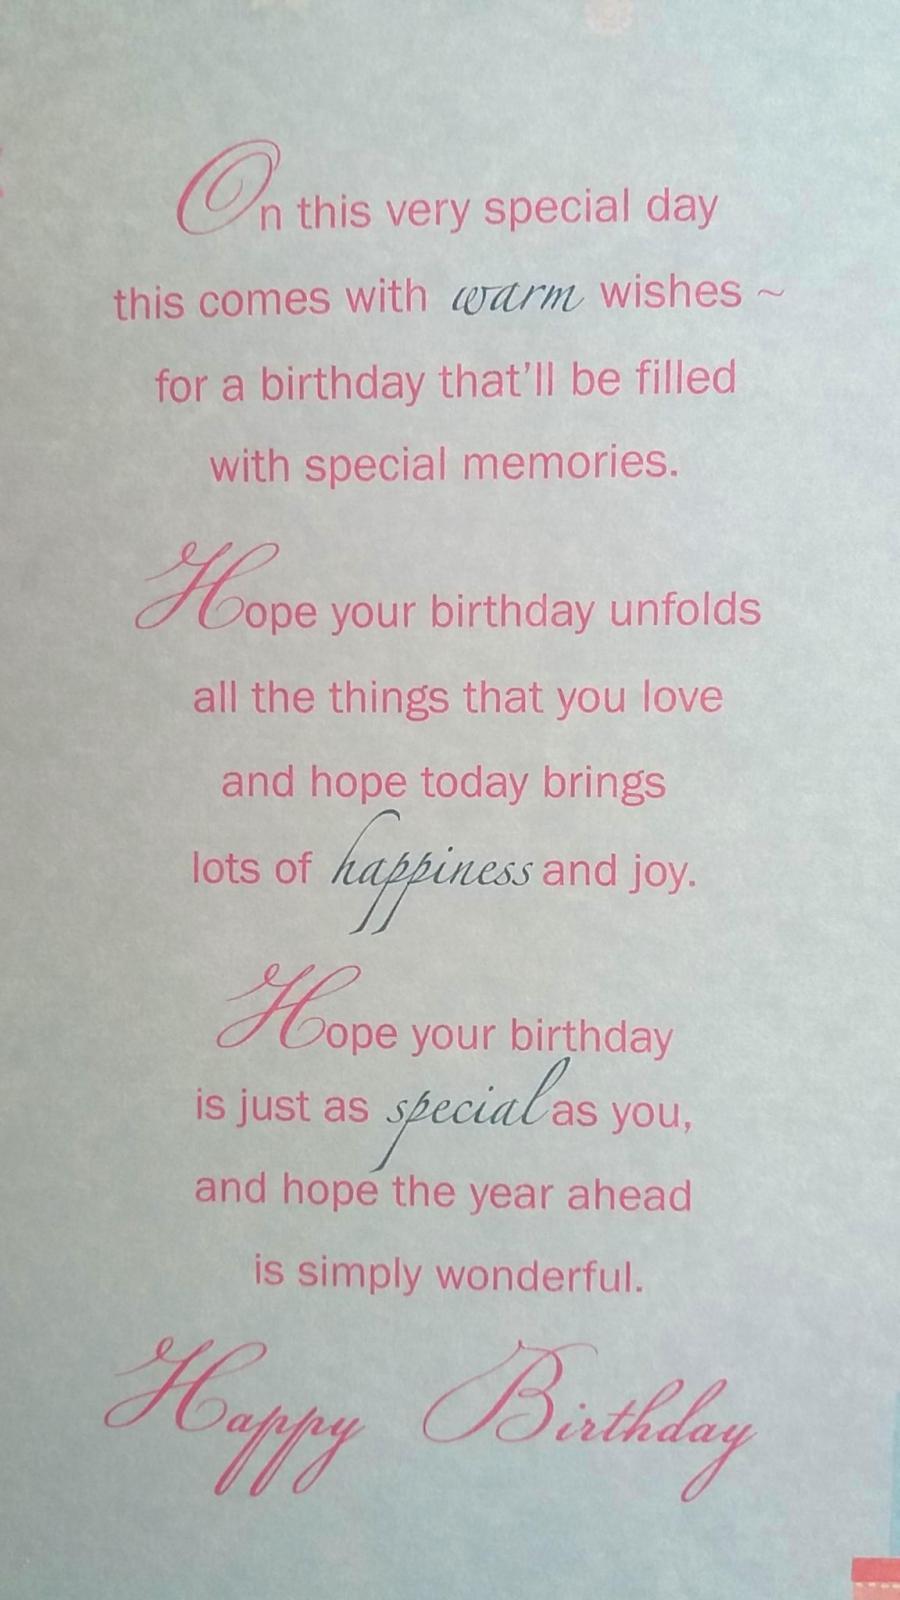 On this very special day
this comes with warm wishes ~
for a birthday that'll be filled
with special memories.
Hope your birthday unfolds
all the things that you love
and hope today brings
lots of happiness and joy.
Hope your birthday
is just as special as you,
and hope the year ahead
is simply wonderful.
Happy Birthday